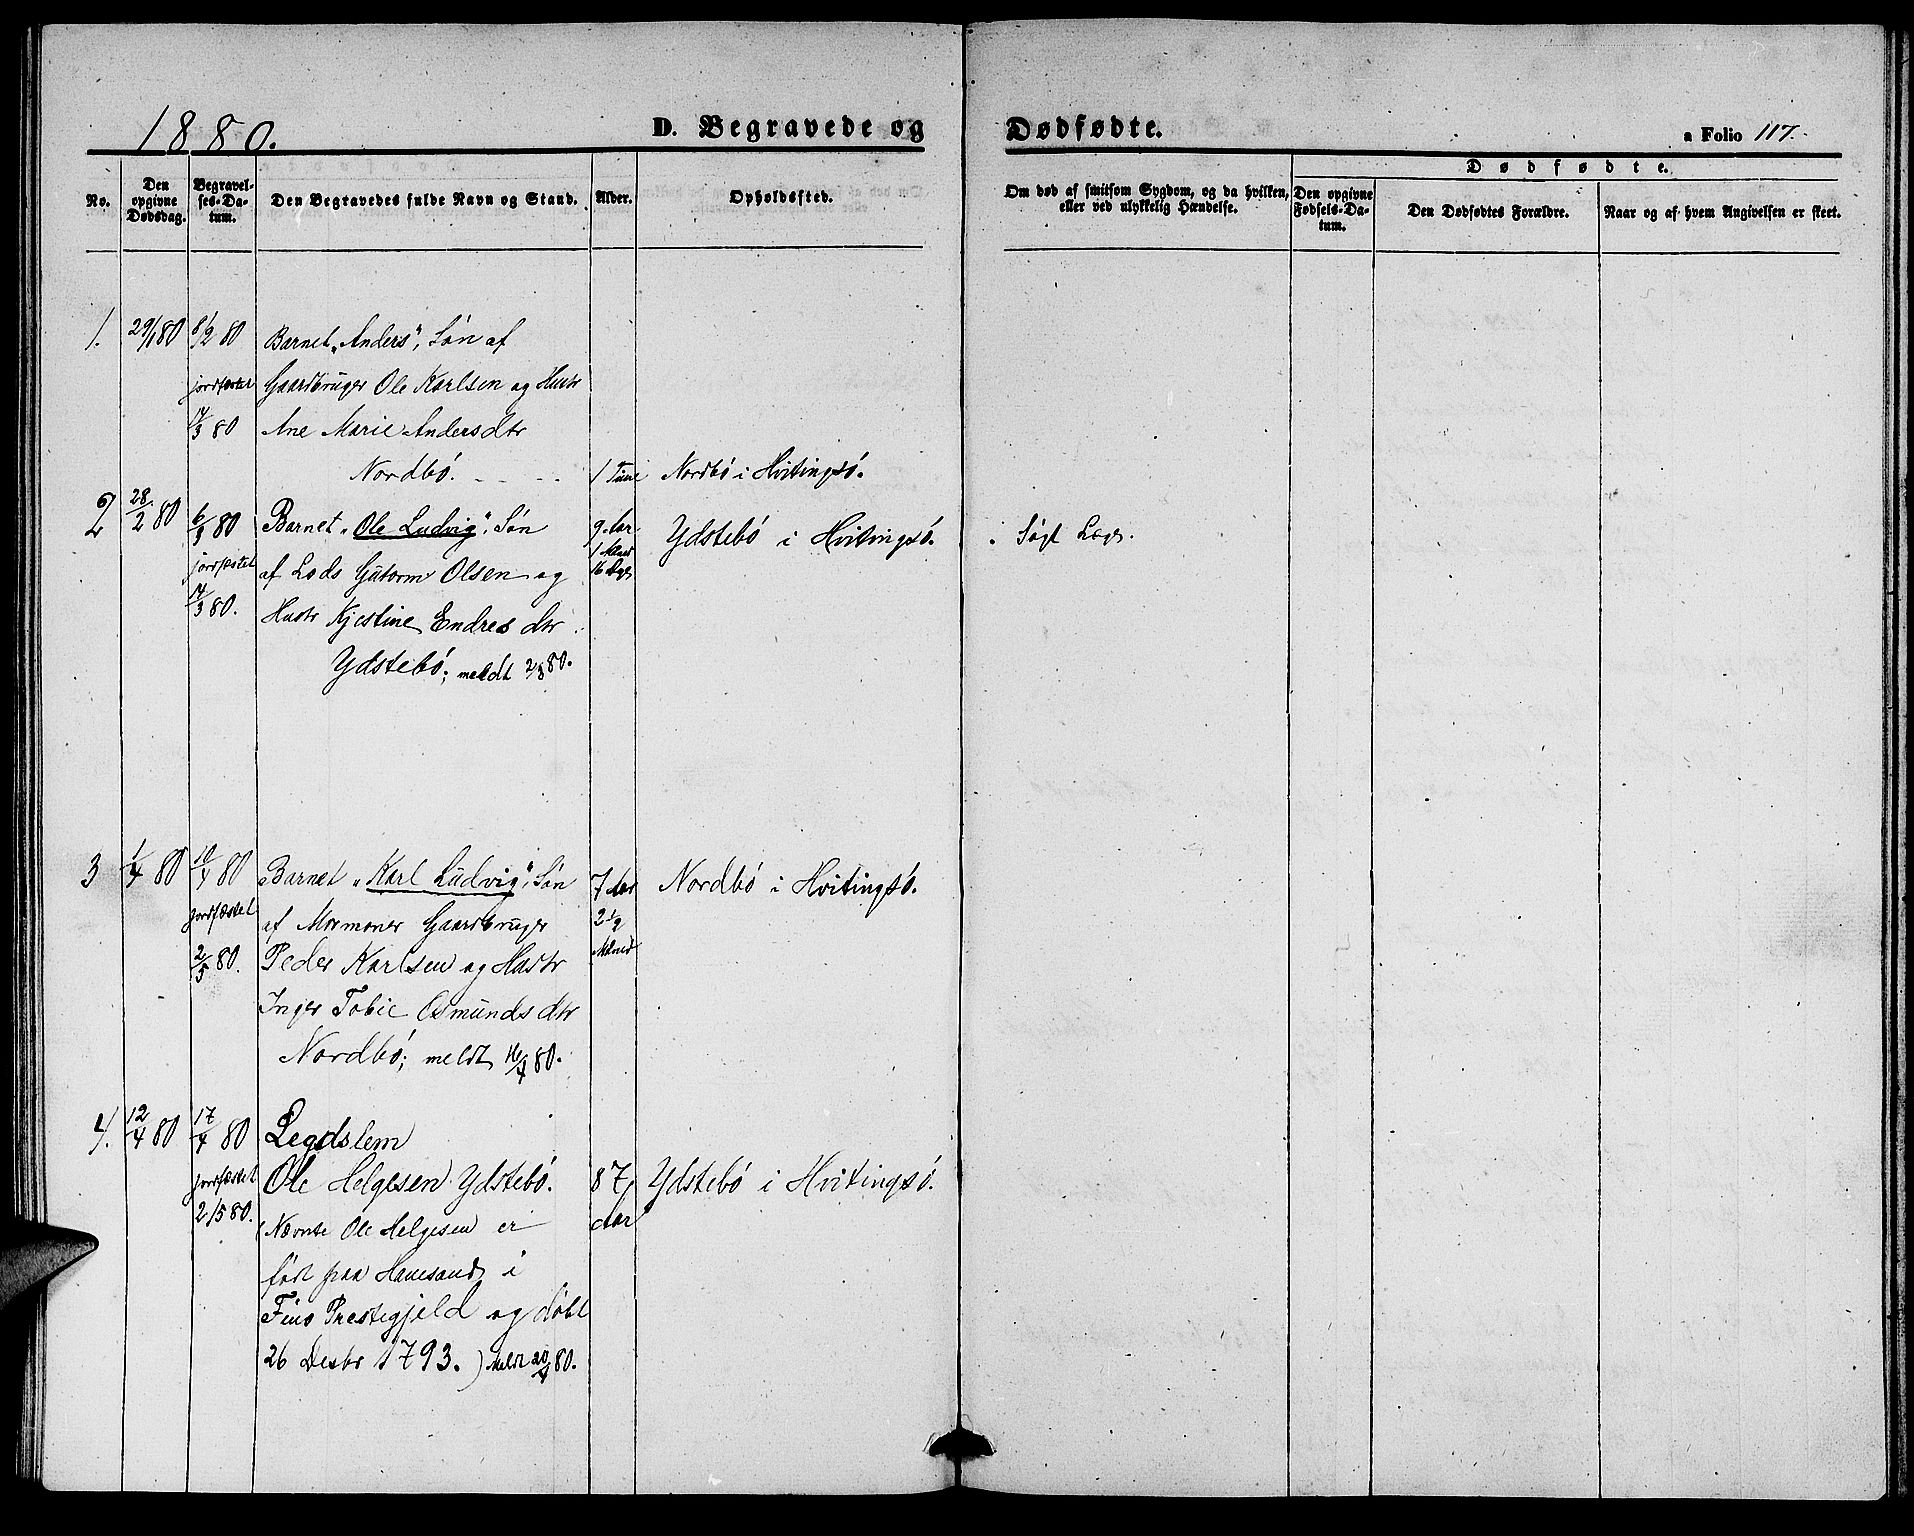 1880.
D. Begravede og Dødfødte.
a Folio 117.
No.
Den opgivne Dødsdag.
Begravelses-Datum.
Den Begravedes fulde Navn og Stand.
Alder.
Opholdssted.
Om død af smitsom Sygdom, og da hvilken, eller ved ulykkelig Hændelse.
Dødfødte.
Den opgivne Fødsels-Datum.
Den Dødfødtes Forældre.
Naar og af hvem Angivelsen er skeet.
1. 29/1 80 8/2 80 Barnet „Anders“, Søn af
jordfæstet Gaardbruger Ole Karlsen og Hustr
17/3 80 Ane Marie Andersdtr
Nordbö. 1 Time Nordbö i Hvitingsö.
2 28/2 80 6/3 80 Barnet „Ole Ludvig“, Søn 9 Aar Ydstebö i Hvitingsö. Søgt Læge.
jordfæstet af Lods Gutorm Olsen og 1 Maned 16 Dage
17/3 80. Hustr Kjestine Endresdtr
Ydstebö; meldt 2/3 80.
3 1/4 80 10/4 80 Barnet „Karl Ludvig“, Søn 7 Aar Nordbö i Hvitingsö.
jordfæstet af Mormoner Gaardbruger 2 1/2
2/5 80. Peder Karlsen og Hustr Maned
Inger Tobie Osmundsdtr
Nordbö; meldt 16/4 80.
4. 12/4 80 17/4 80 Legdslem
jordfæstet Ole Helgesen Ydstebö. 87 Ydstebö i Hvitingsö.
2/5 80. (Nævnte Ole Helgesen er Aar
født paa Hanesand i
Finø Prestegjeld og døbt
26 Desbr 1793.) Meldt 20/4 80.